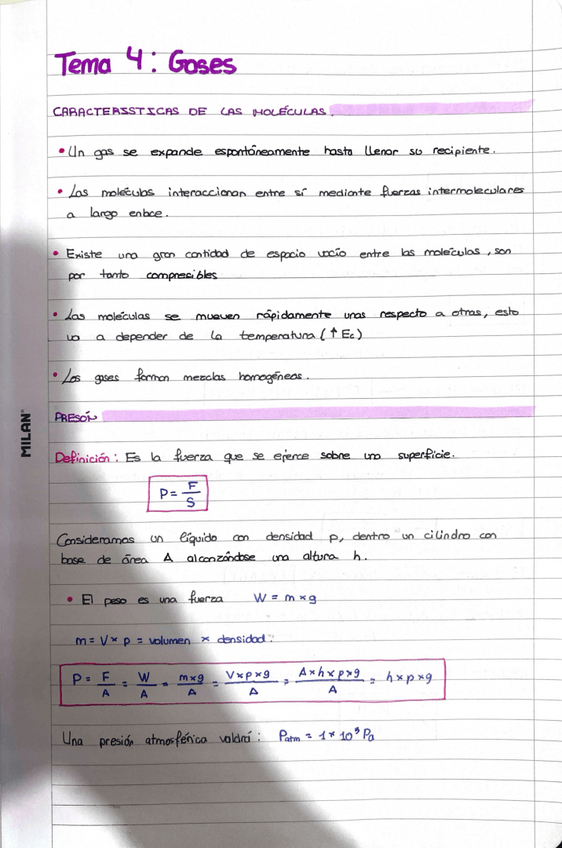 Tema 4: Gases
CARACTERISTICAS DE LAS MOLÉCULAS.
• Un gas se expande espontáneamente hasta llenar su recipiente.
• Las moléculas interaccionan entre sí mediante fuerzas intermoleculares
a largo enlace.
• Existe una gran cantidad de espacio vacío entre las moléculas, son
por tanto compresibles
• Las moléculas se mueven rápidamente unas respecto a otras, esto
va a depender de la temperatura (↑ Ec)
• Los gases forman mezclas homogéneas.
PRESÓN
MILAN
Definición: Es la fuerza que se ejerce sobre una superficie.
P = F/S
Consideramos un líquido con densidad ρ, dentro un cilindro con
base de área A alcanzándose una altura h.
• El peso es una fuerza W = m × g
m = V × ρ = volumen × densidad.
P = F/A = W/A = m×g/A = V×ρ×g/A = A×h×ρ×g/A = h×ρ×g
Una presión atmosférica valdrá: Patm = 1 × 10⁵ Pa